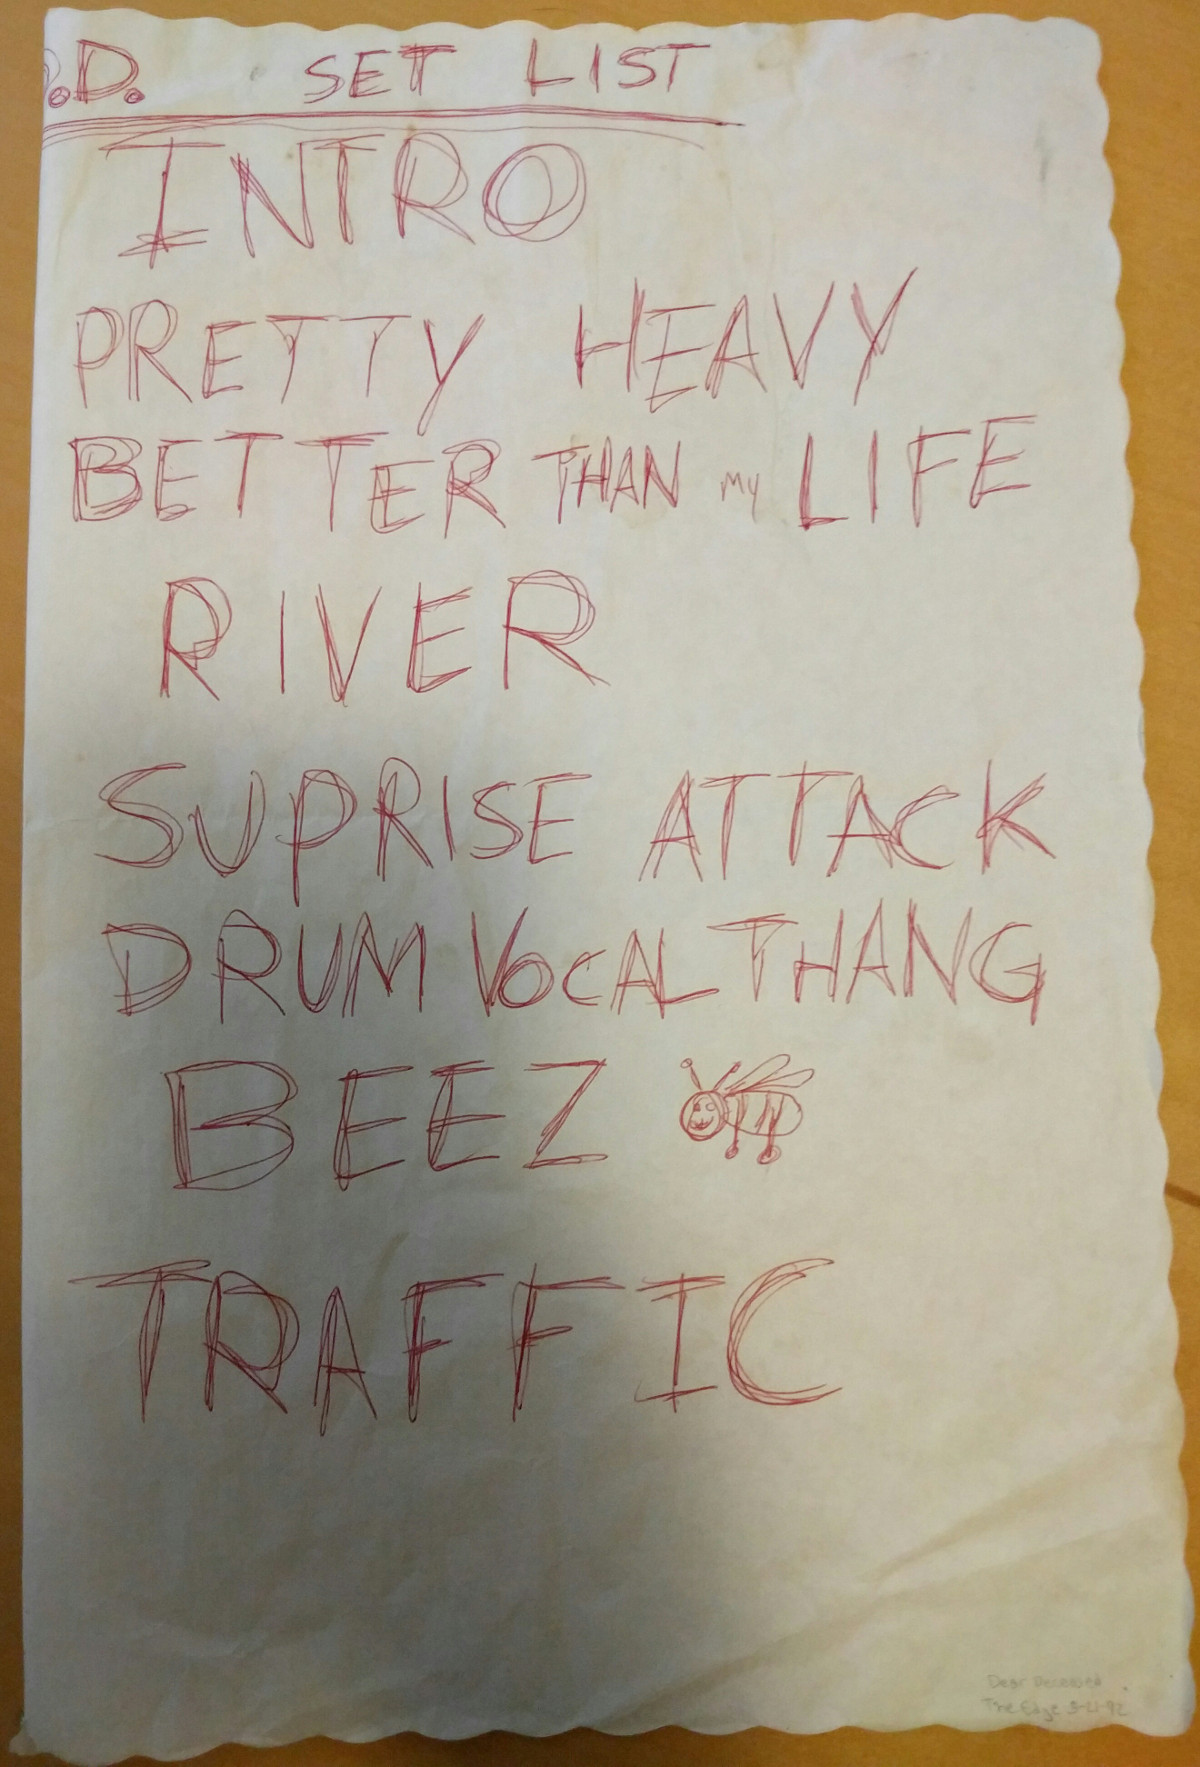 .D. SET LIST
INTRO
PRETTY HEAVY
BETTER THAN MY LIFE
RIVER
SUPRISE ATTACK
DRUM VOCAL THANG
BEEZ
TRAFFIC
Dear Deceased
The Edge